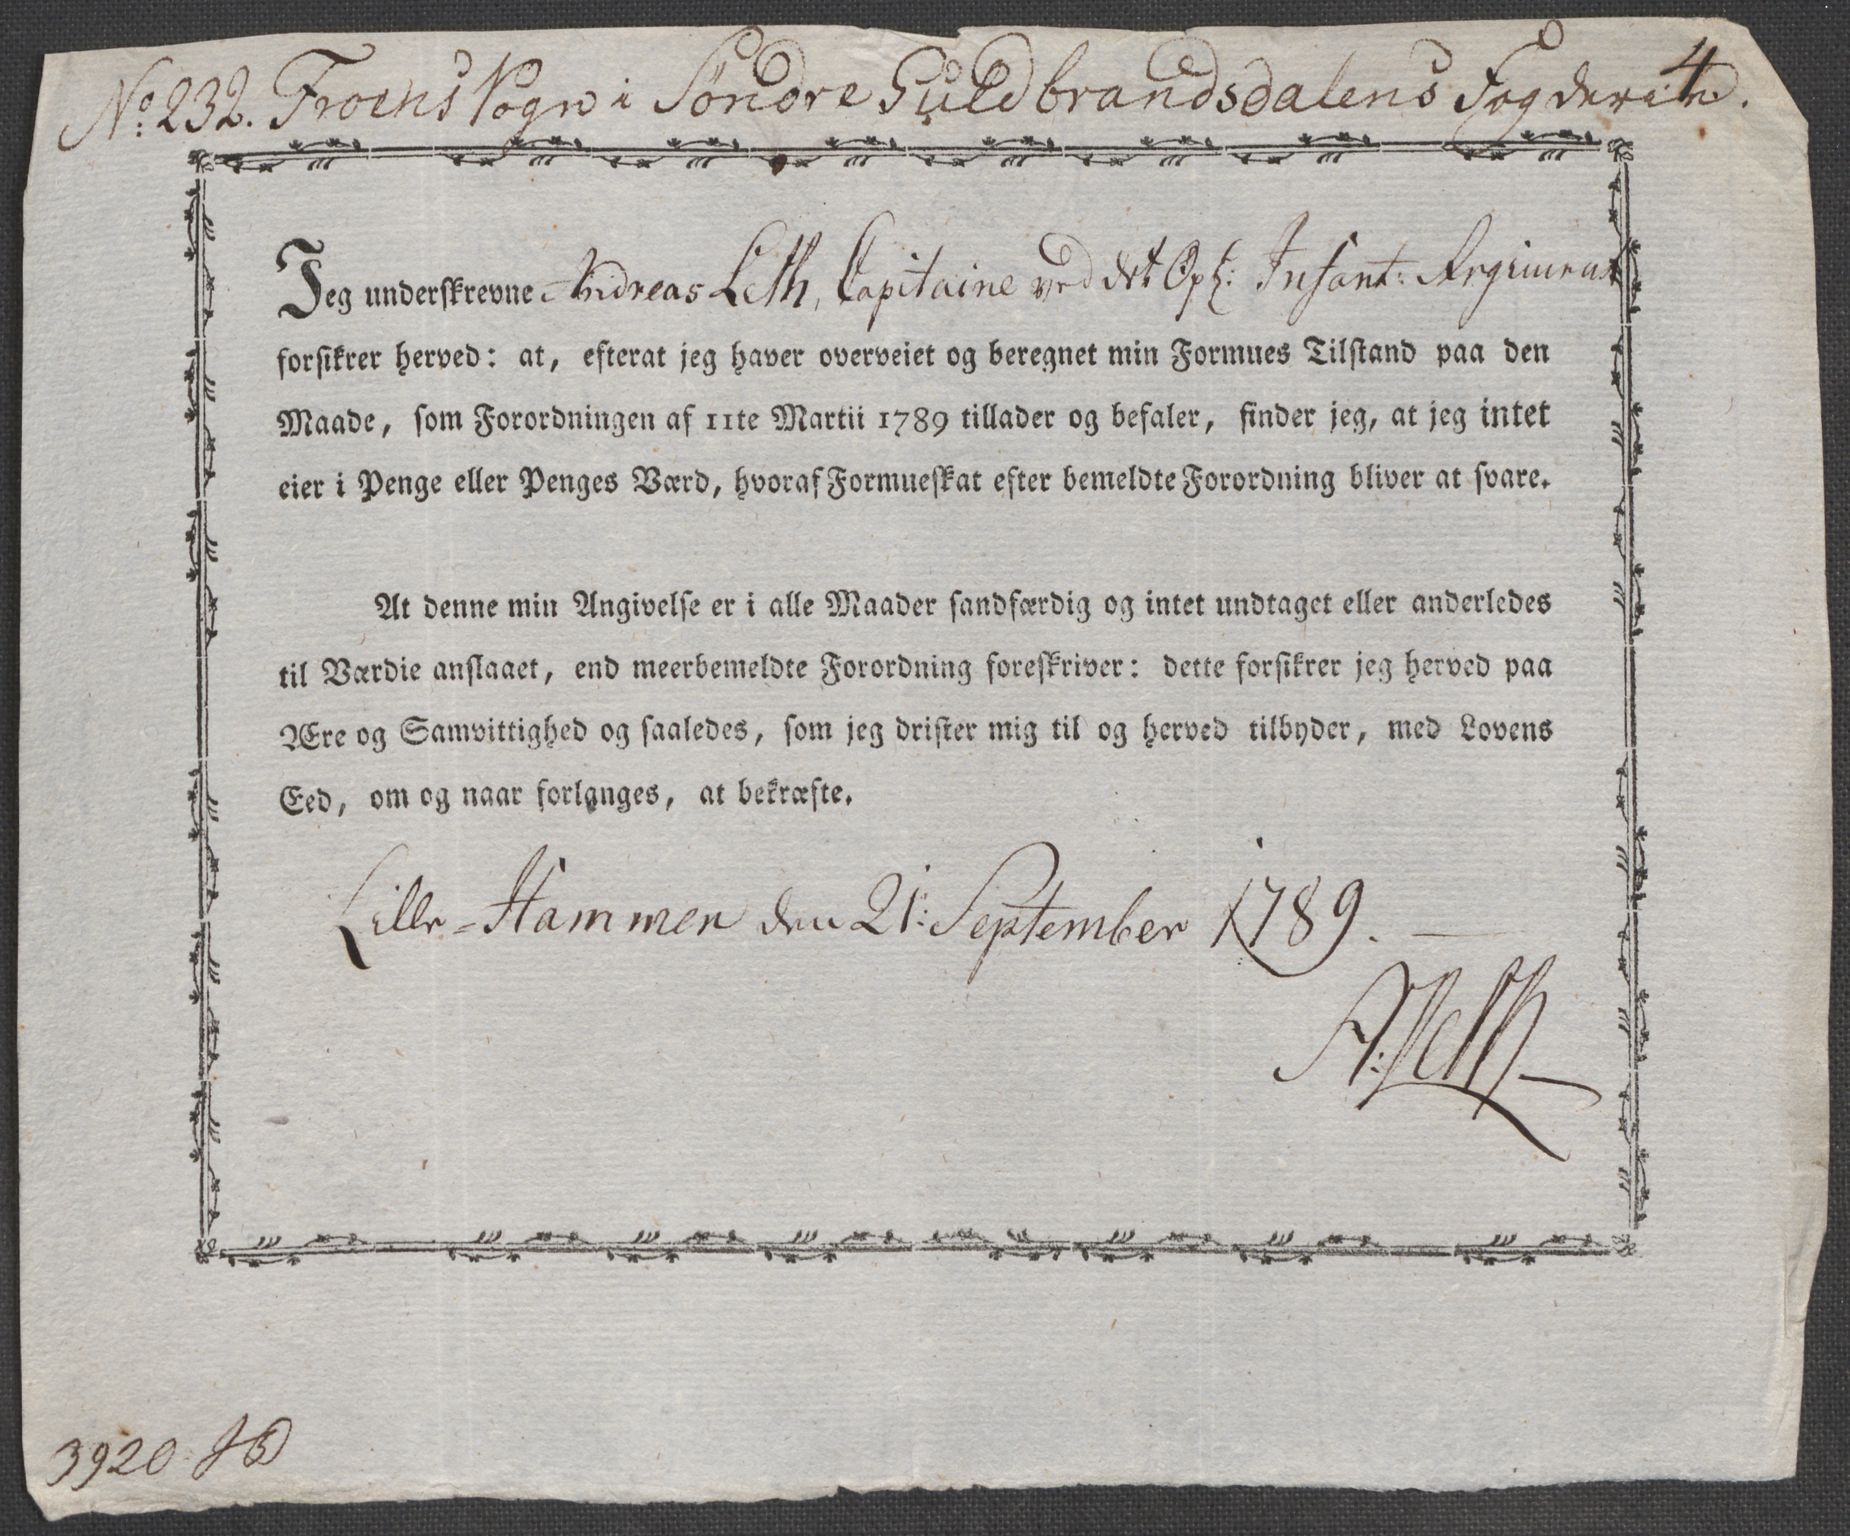 No. 232. Froens Sogn i Söndre Guldbrandsdalens Fogderie.
4
Jeg underskrevne Andreas Leth, Capitaine ved det Opl: Infant: Regiment
forsikrer herved: at, efterat jeg haver overveiet og beregnet min Formues Tilstand paa den
Maade, som Forordningen af 11te Martii 1789 tillader og befaler, finder jeg, at jeg intet
eier i Penge eller Penges Værd, hvoraf Formueskat efter bemeldte Forordning bliver at svare.
At denne min Angivelse er i alle Maader sandfærdig og intet undtaget eller anderledes
til Værdie anslaaet, end meerbemeldte Forordning foreskriver: dette forsikrer jeg herved paa
Ære og Samvittighed og saaledes, som jeg drister mig til og herved tilbyder, med Lovens
Eed, om og naar forlanges, at bekræfte.
Lille-Hammer den 21: September 1789.
A: Leth
3920